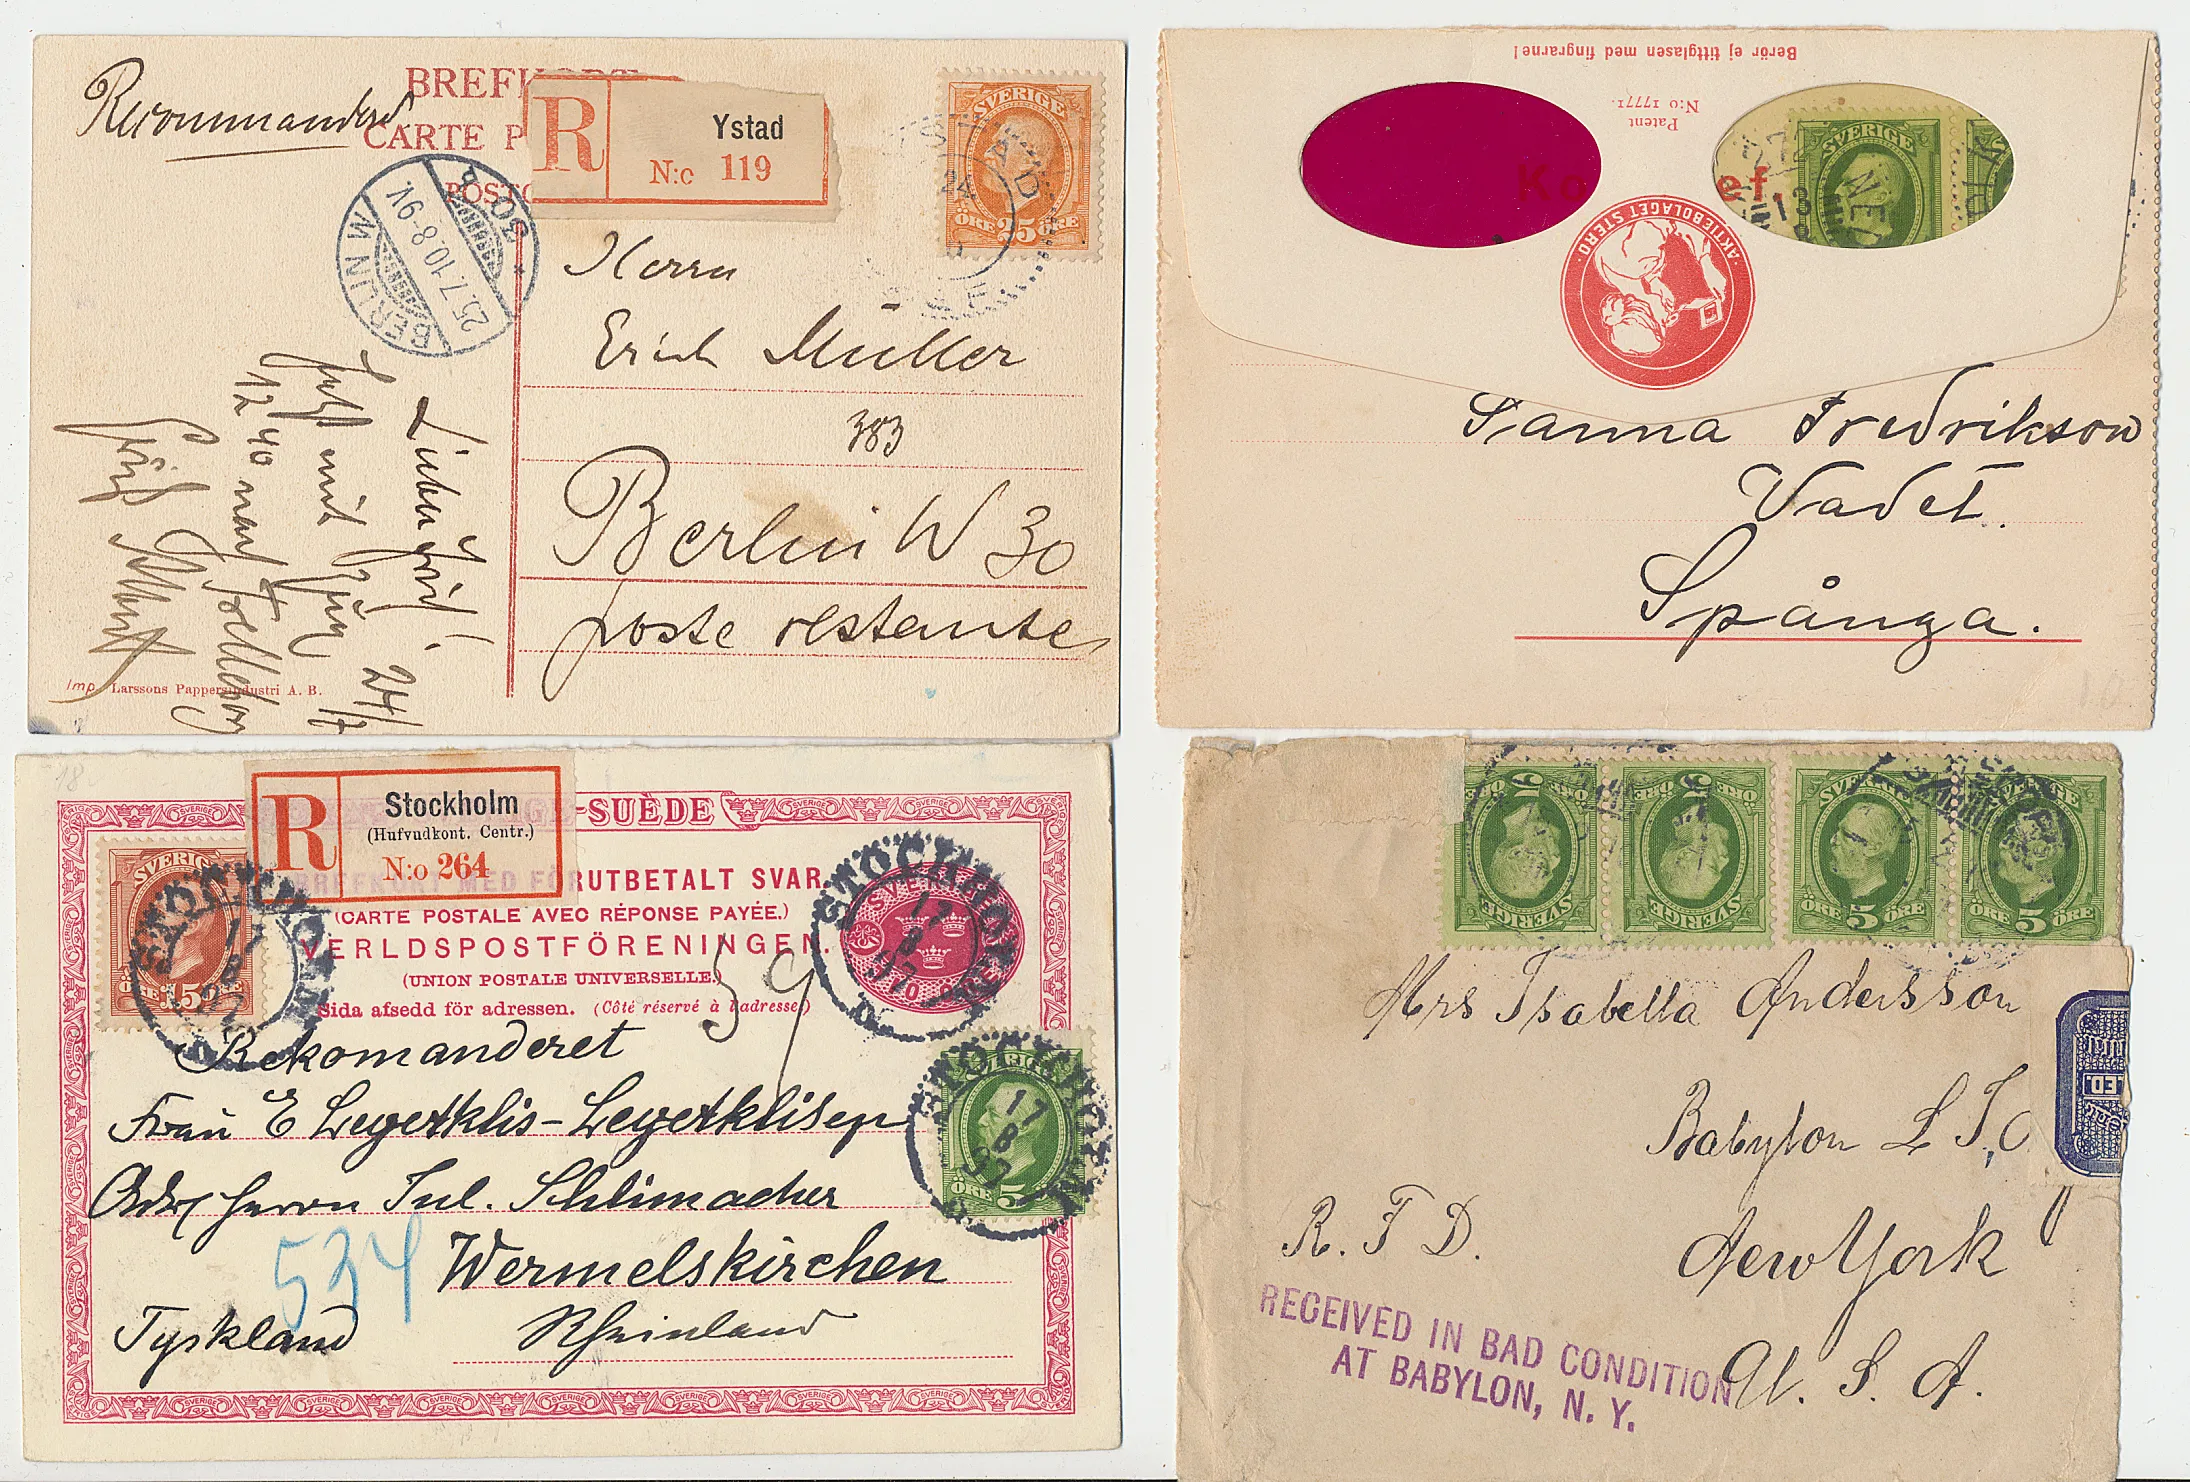 Recommanderd
BREFKORT
CARTE P
POSTC
R
Ystad
N:o 119
SVERIGE
25
ÖRE ÖRE
BERLIN W
25.7.10.8-9V.
* 30 b
Herrn
Erich Müller
383
Berlin W 30
poste restante
Lieber Erich!
24/7
12 40 nach Trelleborg
Imp. Larssons Pappersindustri A. B.
Berör ej tittglasen med fingrarne!
Patent
N:o 17771.
Ko
ef.
SVERIGE
AKTIEBOLAGET STERO
Sanna Fredrikson
Vadet.
Spånga.
R
Stockholm
(Hufvudkont. Centr.)
N:o 264
-SUÈDE
BREFKORT MED FÖRUTBETALT SVAR.
(CARTE POSTALE AVEC RÉPONSE PAYÉE.)
VERLDSPOSTFÖRENINGEN.
(UNION POSTALE UNIVERSELLE.)
Sida afsedd för adressen. (Côté réservé à l'adresse.)
SVERIGE
15
ÖRE
STOCKHOLM
17
8
97
STOCKHOLM
17
8
97
STOCKHOLM
17
8
97
ÖRE 5
59
Rekomanderet
Frau E Legetklis-Legetklisep
Adr Herrn Jul. Schlimacher
534
Wermelskirchen
Tyskland
Rheinland
SVERIGE
SVERIGE
SVERIGE
SVERIGE
ÖRE 5 ÖRE
ÖRE 5 ÖRE
ÖRE 5 ÖRE
ÖRE 5 ÖRE
Mrs Isabella Andersson
Babylon L I,
R. F. D.
New York
U. S. A.
RECEIVED IN BAD CONDITION
AT BABYLON, N. Y.